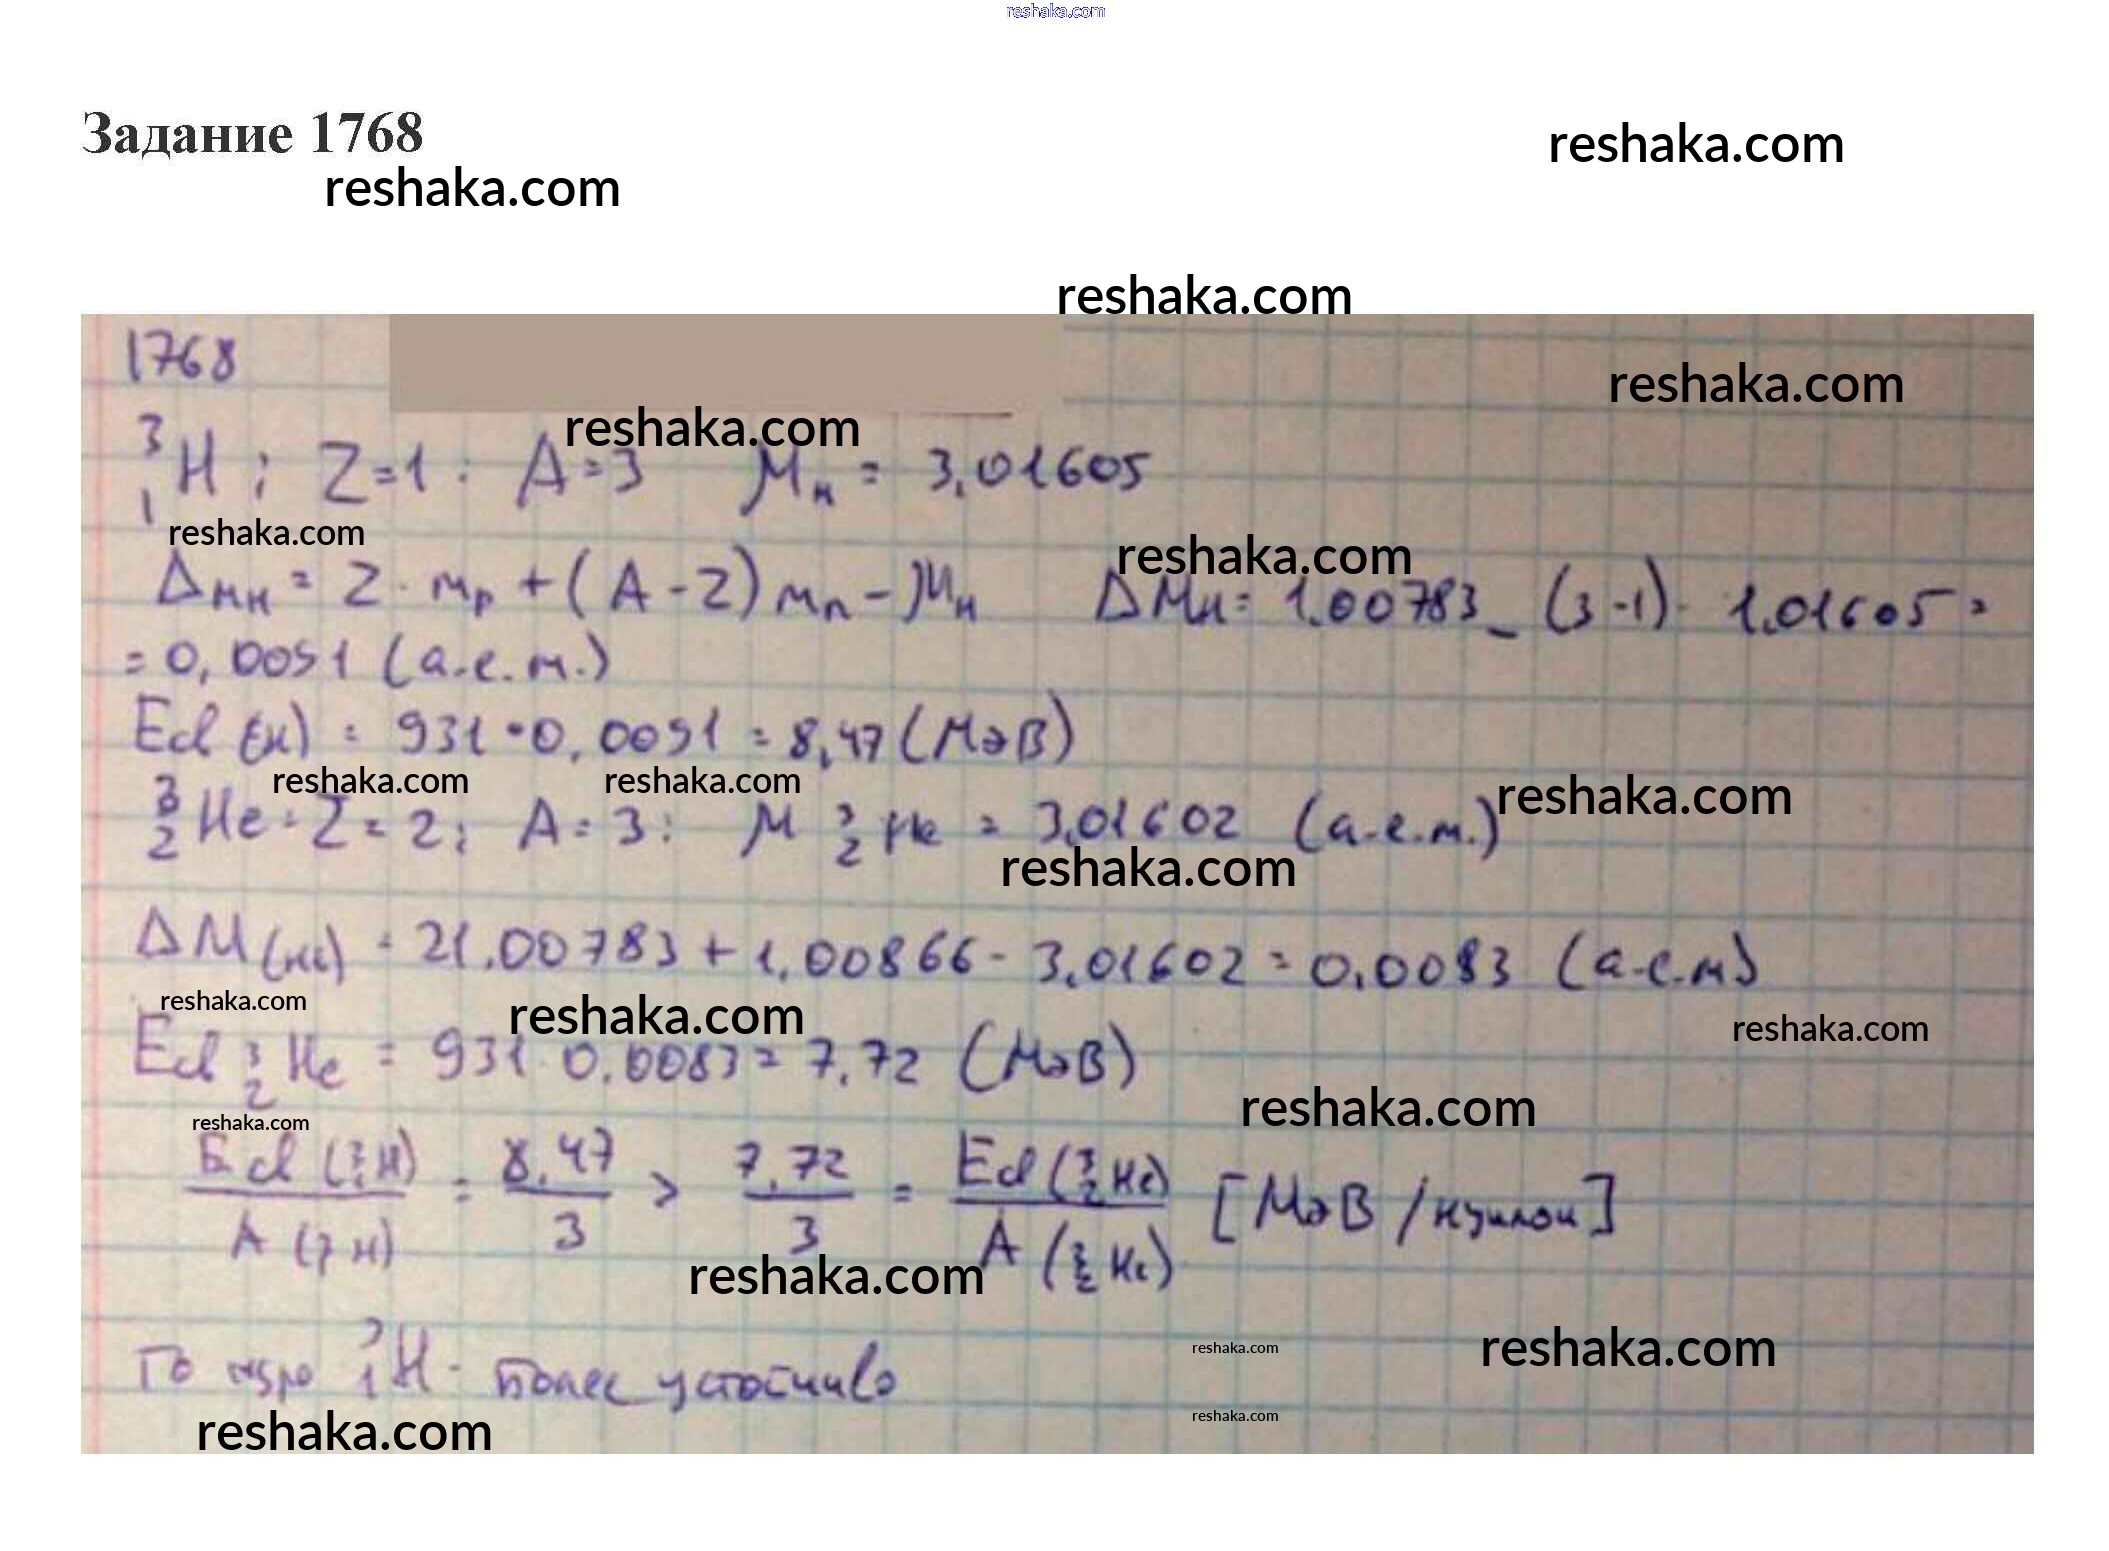 reshaka.com
Задание 1768
reshaka.com
reshaka.com
reshaka.com
1768
reshaka.com
reshaka.com
³₁H ; Z=1 : A=3 Mн = 3,01605
reshaka.com
reshaka.com
Δмн = Z · mp + (A - Z) mn - Mн ΔMн = 1.00783 _ (3-1) · 1.01605 =
= 0,0051 (а.е.м.)
Ed (н) = 931 · 0,0091 = 8,47 (МэВ)
reshaka.com reshaka.com reshaka.com
³₂He : Z = 2 ; A = 3 ; M ³₂He = 3,01602 (а.е.м.)
reshaka.com
ΔM(He) = 21.00783 + 1,00866 - 3,01602 = 0,0083 (а.е.м)
reshaka.com reshaka.com reshaka.com
Ed ³₂He = 931 · 0,0083 = 7,72 (МэВ)
reshaka.com
reshaka.com
Ed (³₁H) / A (³₁H) = 8,47 / 3 > 7,72 / 3 = Ed (³₂He) / A (³₂He) [МэВ / нуклон]
reshaka.com
То ядро ³₁H - более устойчиво
reshaka.com reshaka.com
reshaka.com reshaka.com